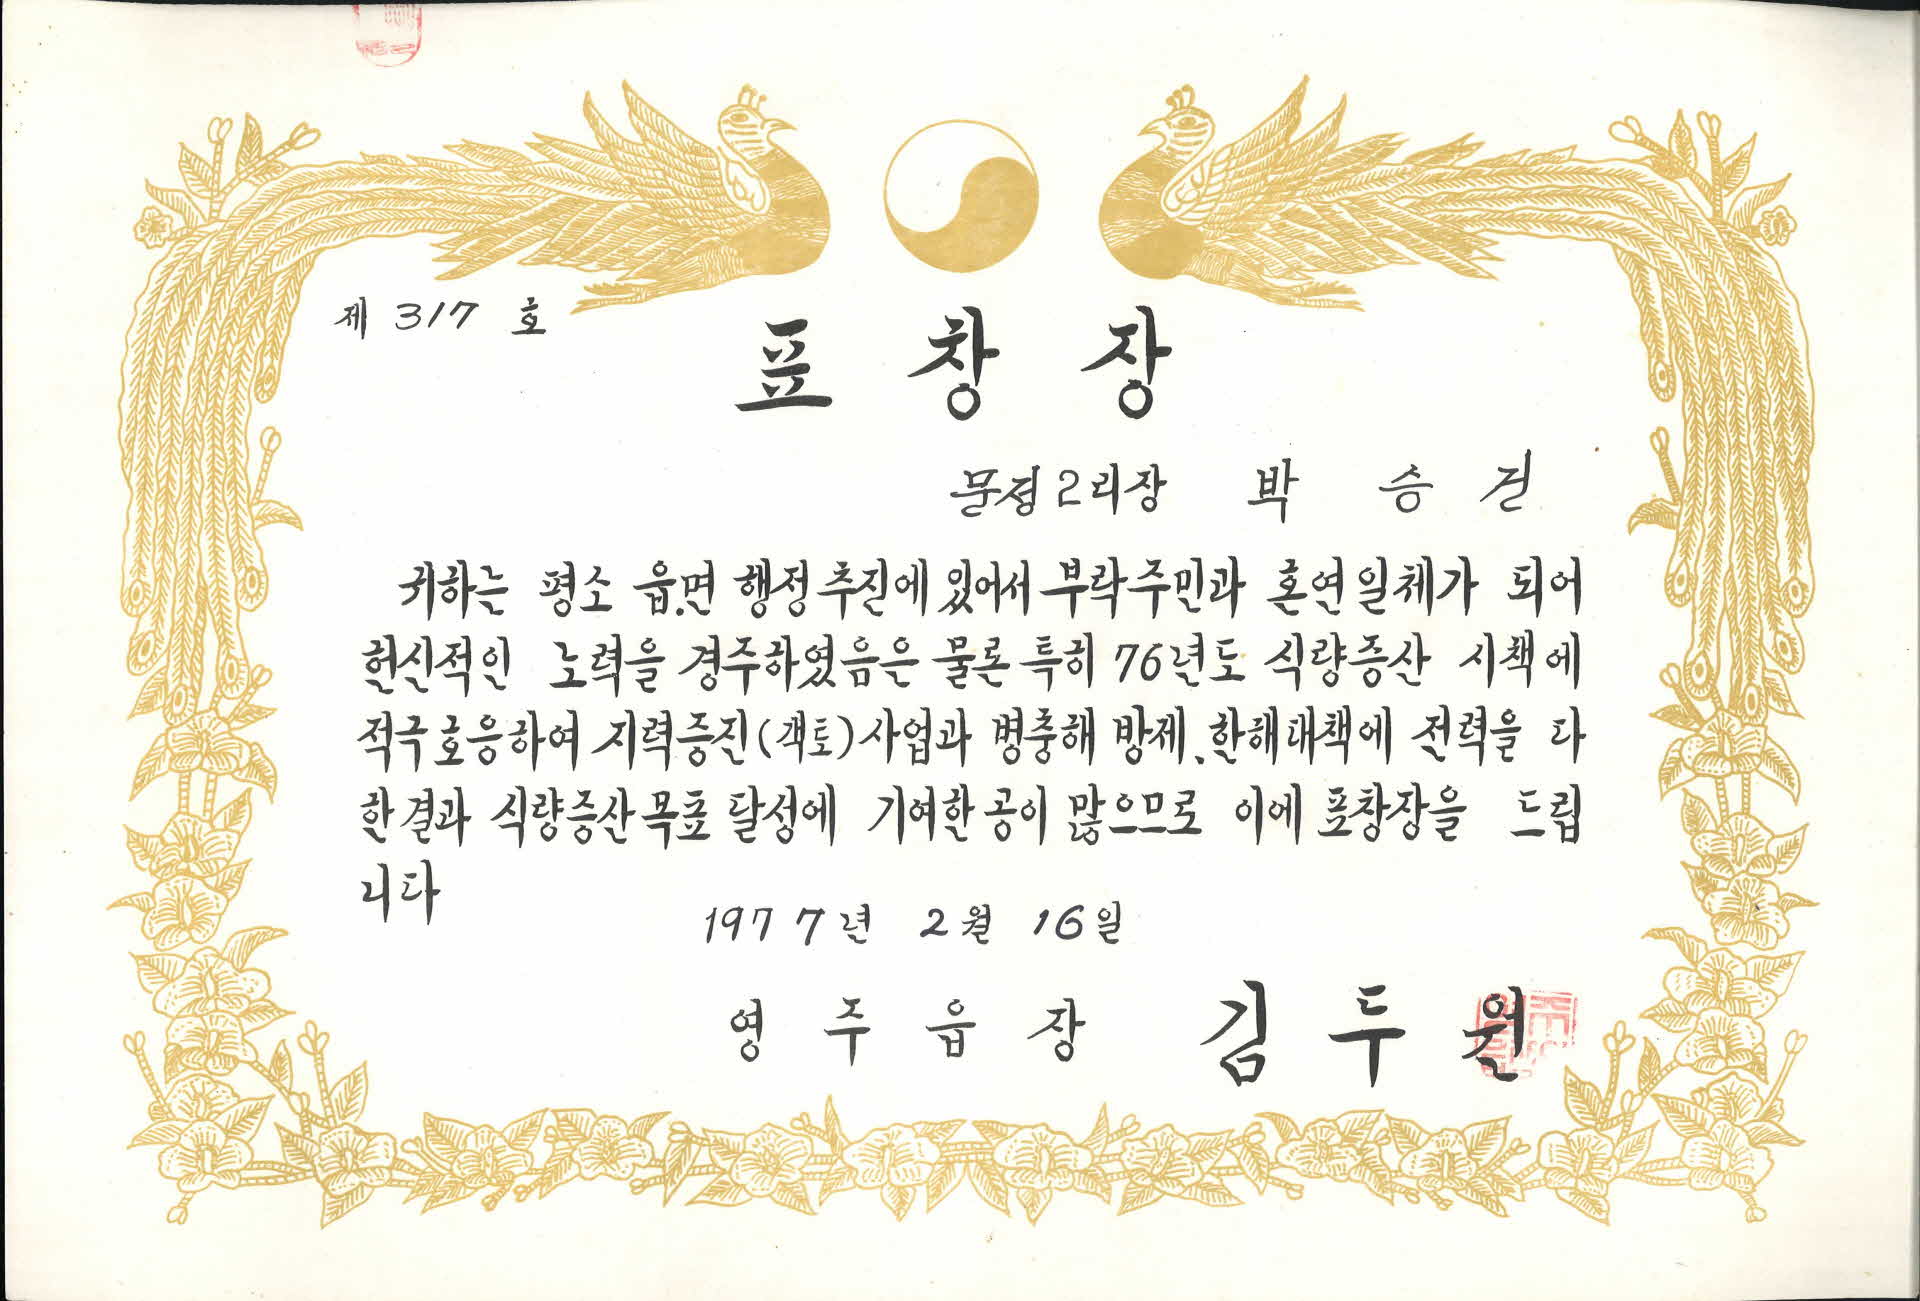 제 317 호
표 창 장
문정2리장 박 승 진
귀하는 평소 읍.면 행정추진에 있어서 부락주민과 혼연일체가 되어
헌신적인 노력을 경주하였음은 물론 특히 76년도 식량증산 시책에
적극호응하여 지력증진(객토)사업과 병충해 방제.한해대책에 전력을 다
한결과 식량증산목표 달성에 기여한공이 많으므로 이에 표창장을 드립
니다
1977년 2월 16일
영 주 읍 장 김 두 원